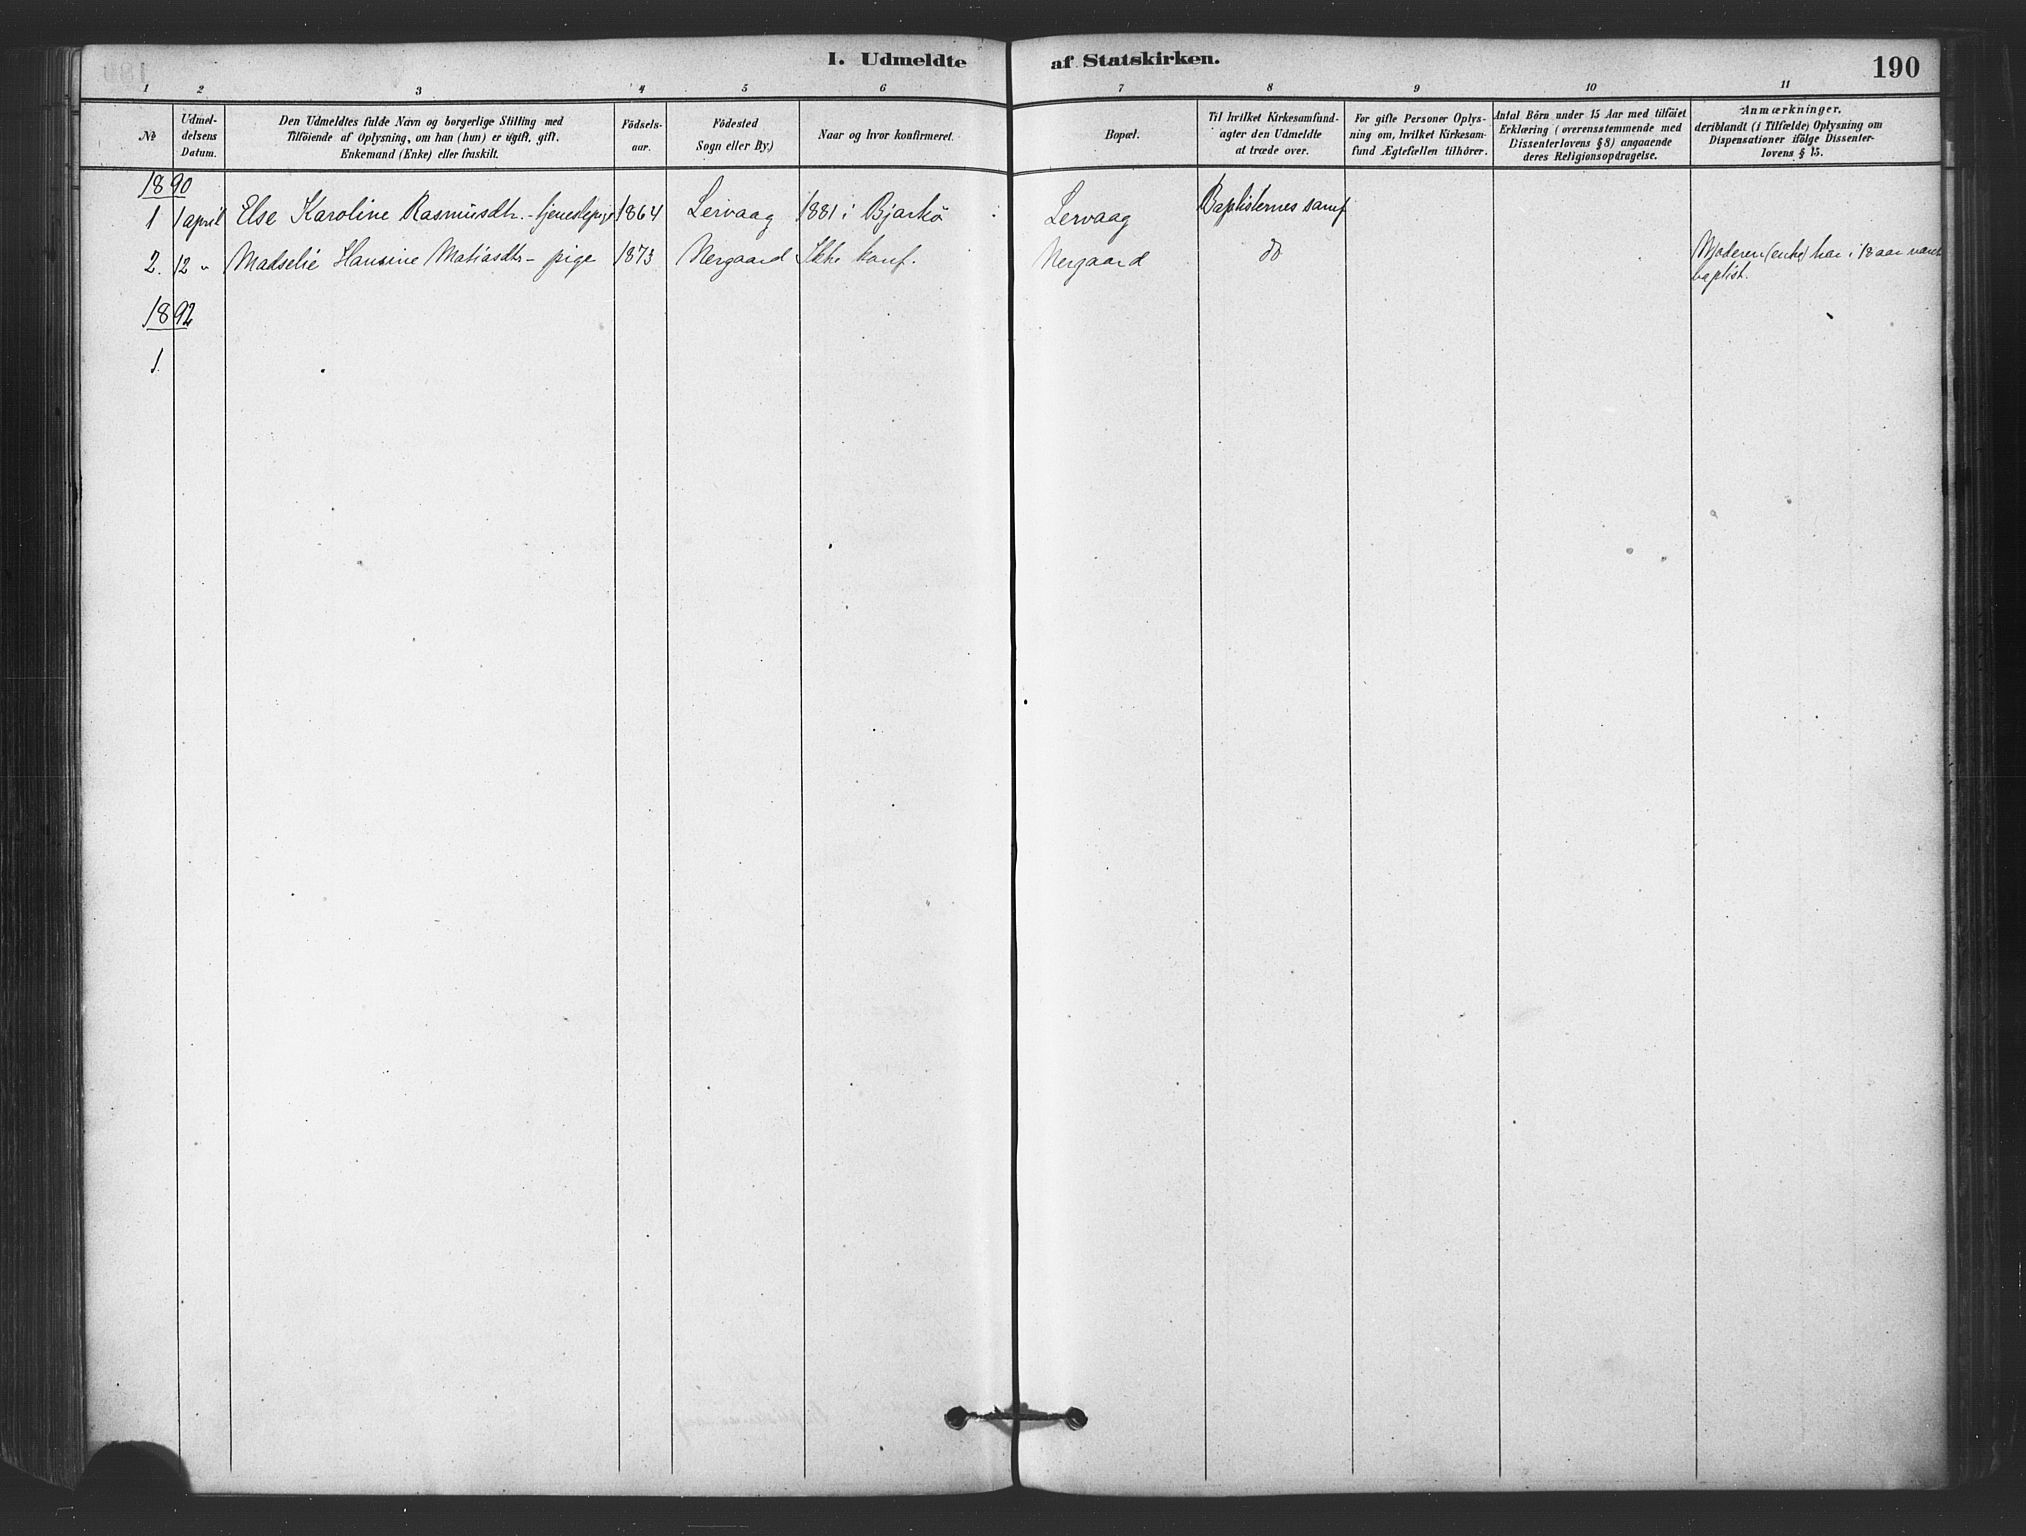 I. Udmeldte af Statskirken.
190
1 2 3 4 5 6 7 8 9 10 11
No
Udmel-
delsens
Datum.
Den Udmeldtes fulde Navn og borgerlige Stilling med
Tilföiende af Oplysning, om han (hun) er ugift, gift,
Enkemand (Enke) eller fraskilt.
Födsels-
aar.
Födested
Sogn eller By.)
Naar og hvor konfirmeret.
Bopæl.
Til hvilket Kirkesamfund-
agter den Udmeldte
at træde over.
For gifte Personer Oplys-
ning om, hvilket Kirkesam-
fund Ægtefællen tilhörer.
Antal Börn under 15 Aar med tilföiet
Erklæring (overensstemmende med
Dissenterlovens § 8) angaaende
deres Religionsopdragelse.
Anmærkninger,
deriblandt (i Tilfælde) Oplysning om
Dispensationer ifölge Dissenter-
lovens § 15.
1890
1 1 april Else Karoline Rasmusdtr. - tjenestepige 1864 Lervaag 1881 i Bjarkö Lervaag Baptisternes samf
2. 12 " Madselie Hansine Matiasdtr - pige 1873 Nergaard Ikke konf. Nergaard do Moderen (enke) har i 18 aar været
baptist.
1892
1.